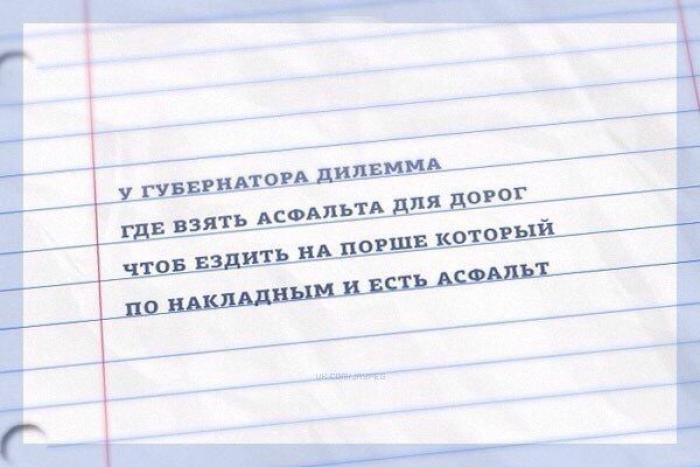 У ГУБЕРНАТОРА ДИЛЕММА
ГДЕ ВЗЯТЬ АСФАЛЬТА ДЛЯ ДОРОГ
ЧТОБ ЕЗДИТЬ НА ПОРШЕ КОТОРЫЙ
ПО НАКЛАДНЫМ И ЕСТЬ АСФАЛЬТ